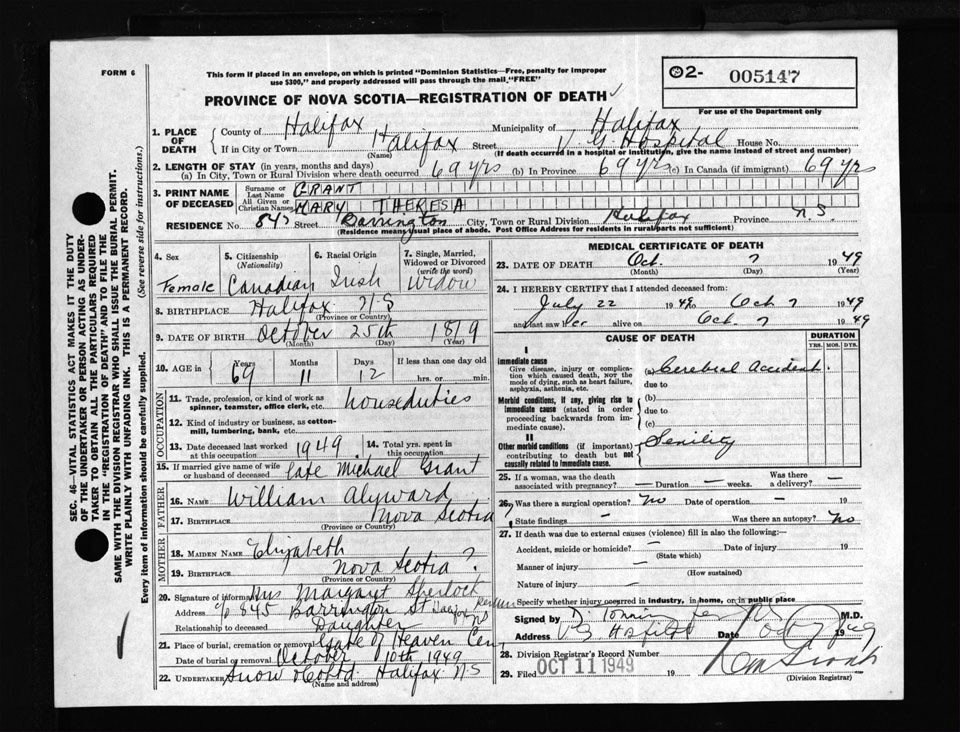 FORM 6
This form if placed in an envelope, on which is printed "Dominion Statistics—Free, penalty for improper
use $300," and properly addressed will pass through the mail "FREE"
PROVINCE OF NOVA SCOTIA—REGISTRATION OF DEATH
02- 005147
For use of the Department only
1. PLACE OF DEATH
County of Halifax Municipality of Halifax
If in City or Town Halifax Street V G Hospital House No.
(Name) (If death occurred in a hospital or institution, give the name instead of street and number)
2. LENGTH OF STAY (in years, months and days)
(a) In City, Town or Rural Division where death occurred 69 yrs (b) In Province 69 yrs (c) In Canada (if immigrant) 69 yrs
3. PRINT NAME OF DECEASED
Surname or Last Name GRANT
All Given or Christian Names MARY THERESA
RESIDENCE No. 847 Street Barrington City, Town or Rural Division Halifax Province N.S.
(Residence means usual place of abode. Post Office Address for residents in rural parts not sufficient)
4. Sex Female
5. Citizenship (Nationality) Canadian
6. Racial Origin Irish
7. Single, Married, Widowed or Divorced (write the word) Widow
8. BIRTHPLACE Halifax N-S
(Province or Country)
9. DATE OF BIRTH October 25th 1879
(Month) (Day) (Year)
10. AGE in Years 69 Months 11 Days 12 If less than one day old hrs. or min.
OCCUPATION
11. Trade, profession, or kind of work as spinner, teamster, office clerk, etc. houseduties
12. Kind of industry or business, as cotton-mill, lumbering, bank, etc.
13. Date deceased last worked at this occupation 1949
14. Total yrs. spent in this occupation
15. If married give name of wife or husband of deceased late Michael Grant
FATHER
16. NAME William Alyward
17. BIRTHPLACE Nova Scotia
(Province or Country)
MOTHER
18. MAIDEN NAME Elizabeth
19. BIRTHPLACE Nova Scotia ?
(Province or Country)
20. Signature of informant Mrs Margaret Sherlock
Address 845 Barrington St Halifax NS
Relationship to deceased Daughter
21. Place of burial, cremation or removal Gate of Heaven Cem
Date of burial or removal October 10th 1949
22. UNDERTAKER Snow & Co Ltd. Halifax N-S
(Name and address)
MEDICAL CERTIFICATE OF DEATH
23. DATE OF DEATH Oct. 7 1949
(Month) (Day) (Year)
24. I HEREBY CERTIFY that I attended deceased from:
July 22 1949 to Oct 7 1949
and last saw her alive on Oct. 7 1949
CAUSE OF DEATH
DURATION
YRS. MOS. DYS.
I
Immediate cause
Give disease, injury or complication which caused death, not the mode of dying, such as heart failure, asphyxia, asthenia, etc.
(a) Cerebral Accident.
due to
Morbid conditions, if any, giving rise to immediate cause (stated in order proceeding backwards from immediate cause).
(b)
due to
(c)
II
Other morbid conditions (if important) contributing to death but not causally related to immediate cause.
Senility
25. If a woman, was the death associated with pregnancy? — Duration — weeks. Was there a delivery? —
26. Was there a surgical operation? no Date of operation — 19
State findings — Was there an autopsy? no
27. If death was due to external causes (violence) fill in also the following:
Accident, suicide or homicide? — Date of injury 19
(State which)
Manner of injury —
(How sustained)
Nature of injury —
Specify whether injury occurred in industry, in home, or in public place
Signed by M.D.
Address V G Hospital Date Oct 7 1949
28. Division Registrar's Record Number
29. Filed OCT 11 1949 19
(Division Registrar)
SEC. 46—VITAL STATISTICS ACT MAKES IT THE DUTY
OF THE UNDERTAKER OR PERSON ACTING AS UNDERTAKER TO OBTAIN ALL THE PARTICULARS REQUIRED
IN THE "REGISTRATION OF DEATH" AND TO FILE THE
SAME WITH THE DIVISION REGISTRAR WHO SHALL ISSUE THE BURIAL PERMIT.
WRITE PLAINLY WITH UNFADING INK. THIS IS A PERMANENT RECORD.
Every item of information should be carefully supplied. (See reverse side for instructions.)